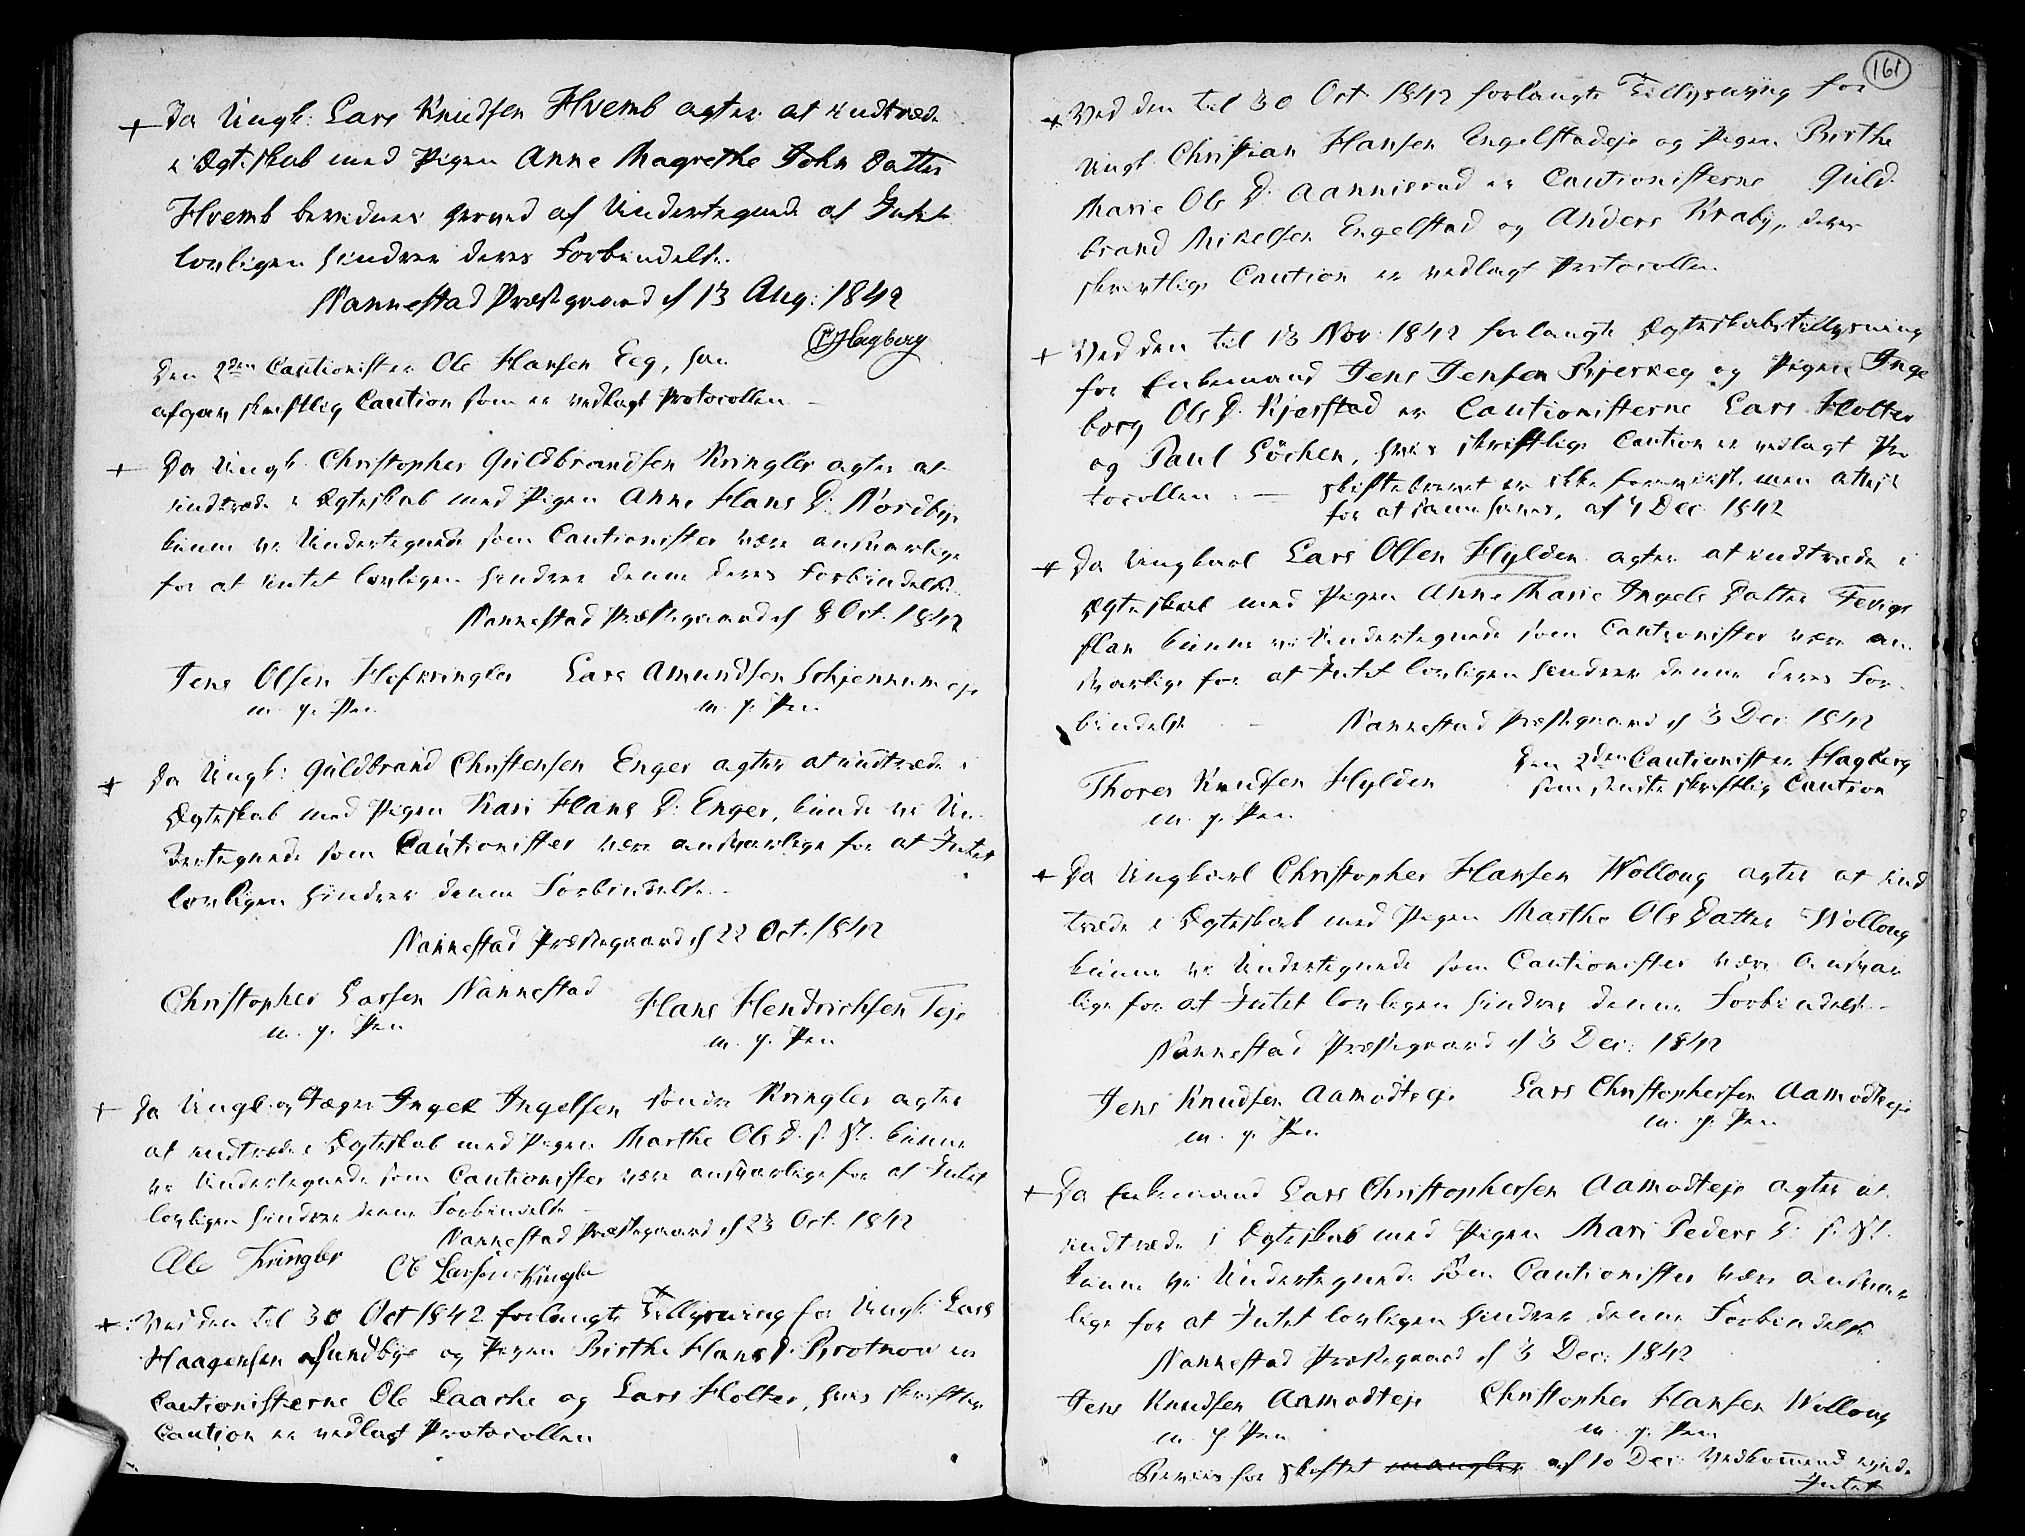 + Da Ungk: Lars Knudsen Hvemb agter at indtræde
i Ægteskab med Pigen Anne Magrethe John Datter
Hvemb bevidnes herved af Undertegnede at Intet
lovligen hindrer deres Forbindelse.
Nannestad Præstegaard d 13 Aug: 1842
Hagberg
Den 2den Cautionist er Ole Hansen Eeg, han
afgav skriftlig Caution som er vedlagt Protocollen –
+ Da Ungk. Christopher Guldbrandsen Kringler agter at
indtræde i Ægteskab med Pigen Anne Hans D. Nordbye
kunne vi Undertegnede som Cautionister være ansvarlige
for at intet lovligen hindrer denne deres Forbindelse.
Nannestad Præstegaard d 8 Oct. 1842
Jens Olsen Hofkringler Lars Amundsen Schjennumeje
m. p. Pen m. p. Pen
+ Da Ungk: Guldbrand Christensen Enger agter at indtræde i
Ægteskab med Pigen Kari Hans D: Enger, kunde vi Un-
dertegnede som Cautionister være ansvarlige for at Intet
lovligen hindrer denne Forbindelse. –
Nannestad Præstegaard d 22 Oct. 1842
Christopher Larsen Nannestad Hans Hendrichsen Teje
m. p. Pen m. p. Pen
+ Da Ungk. og Jæger Ingel Ingelsen søndre Kringler agter
at indtræde i Ægteskab med Pigen Marthe Ols D. s. St. kunne
vi Undertegnede som Cautionister være ansvarlige for at Intet
lovligen hindrer denne Forbindelse –
Nannestad Præstegaard d 23 Oct. 1842
Ole Kringler Ole Larsen Kringler
+ Ved den til 30 Oct 1842 forlangte Tillysning for Ungk: Lars
Haagensen Sundbye og Pigen Birthe Hans D. Brotnou er
Cautionisterne Ole Laache og Lars Holter, hvis skriftlige
Caution er vedlagt Protocollen
161
+ Ved den til 30 Oct 1842 forlangte Tillysning for
Ungk. Christian Hansen Engelstadeje og Pigen Birthe
Marie Ols D. Aannisrud er Cautionisterne Guld-
brand Mikelsen Engelstad og Anders Kraby, deres
skriftlige Caution er vedlagt Protocollen
+ Ved den til 13 Nov. 1842 forlangte Ægteskabstillysning
for Enkemand Jens Jensen Bjerkeg og Pigen Inge
borg Ols D. Kjerstad er Cautionisterne Lars Holter
og Paul Löchen, hvis skriftlige Caution er vedlagt Pro
tocollen. — Skiftebrevet er ikke foreviist, men Attest
for at samme haves, af 4 Dec. 1842
+ Da Ungkarl Lars Olsen Hylden agter at indtræde i
Ægteskab med Pigen Anne Marie Ingels Datter
flan kunne vi Undertegnede som Cautionister være an-
svarlige for at Intet lovligen hindrer denne deres For-
bindelse – Nannestad Præstegaard d 3 Dec. 1842
Den 2den Cautionist er Hagberg
som sendte skriftlig Caution
Thorer Knudsen Hylden
m. p. Pen
+ Da Ungkarl Christopher Hansen Wolloug agter at ind
træde i Ægteskab med Pigen Marthe Ols Datter Wolloug
kunne vi Undertegnede som Cautionister være Ansvar
lige for at Intet lovligen hindrer denne Forbindelse –
Nannestad Præstegaard d 3 Dec: 1842
Jens Knudsen Aamodteje Lars Christophersen Aamodteje
m. p. Pen m. p. Pen
+ Da Enkemand Lars Christophersen Aamodteje agter at
indtræde i Ægteskab med Pigen Mari Peders D. s. St.
kunne vi Undertegnede som Cautionister være ansvar
lige for at Intet lovligen hindrer denne Forbindelse
Nannestad Præstegaard d 3 Dec: 1842
Jens Knudsen Aamodteje Christopher Hansen Wolloug
m. p. Pen m. p. Pen
Beviis for Skiftet mangler af 10 Dec: Vedkommende eyede
Intet